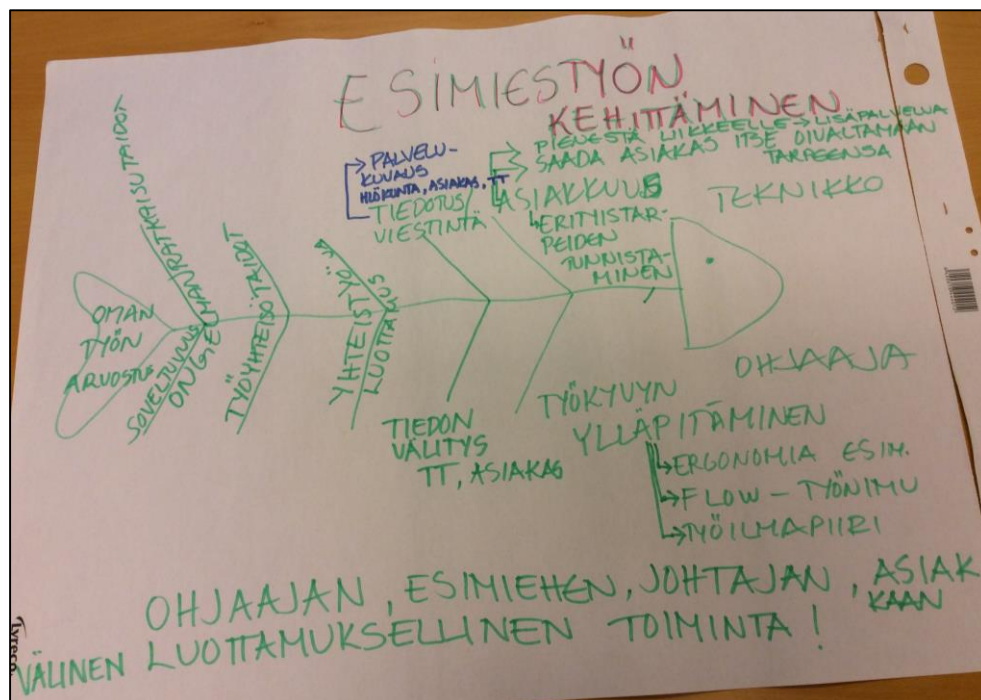 ESIMIESTYÖN
KEHITTÄMINEN
→ PALVELU-
KUVAUS
HLÖKUNTA, ASIAKAS, TT
TIEDOTUS/
VIESTINTÄ
→ PIENESTÄ LIIKKEELLE → LISÄPALVELUA
→ SAADA ASIAKAS ITSE OIVALTAMAAN
TARPEENSA
ASIAKKUUS
↳ ERITYISTAR-
PEIDEN
TUNNISTA-
MINEN
TEKNIKKO
OHJAAJA
OMAN
TYÖN
ARVOSTUS
SOVELTUVUUS
ONGELMANRATKAISUTAIDOT
TYÖYHTEISÖTAIDOT
YHTEISTYÖ JA
LUOTTAMUS
TIEDON
VÄLITYS
TT, ASIAKAS
TYÖKYVYN
YLLÄPITÄMINEN
↳ ERGONOMIA ESIM.
→ FLOW - TYÖNIMU
→ TYÖILMAPIIRI
OHJAAJAN, ESIMIEHEN, JOHTAJAN, ASIAK
KAAN
VÄLINEN LUOTTAMUKSELLINEN TOIMINTA!
Lyreco